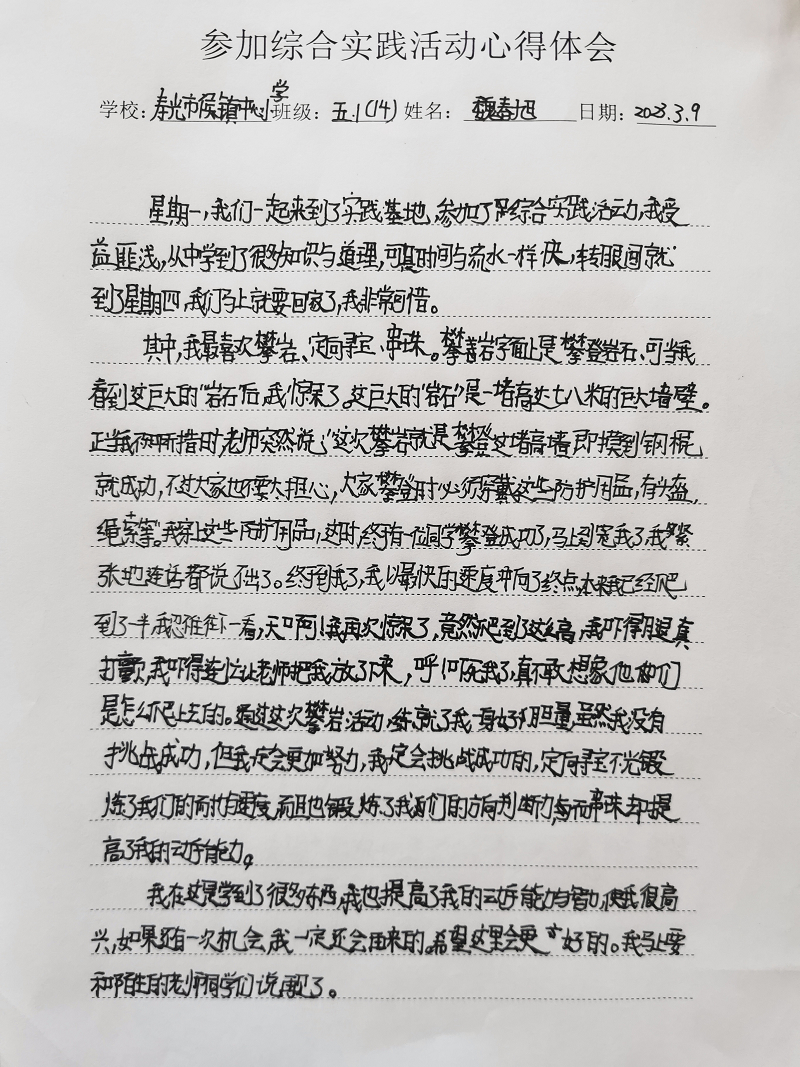 参加综合实践活动心得体会
学校：寿光市侯镇中心小学 班级：五.1(14) 姓名：魏春旭 日期：2023.3.9
星期一,我们一起来到了实践基地,参加了综合实践活动,我受
益匪浅,从中学到了很多知识与道理,可是时间与流水一样快,转眼间就
到了星期四,我们马上就要回家了,我非常可惜。
其中,我最喜欢攀岩、定向寻宝、串珠。攀岩字面上是攀登岩石、可当我
看到这巨大的"岩石"后,我惊呆了。这巨大的"岩石"是一堵高达七八米的巨大墙壁。
正当我不知所措时,老师突然说:"这次攀岩就是攀登这堵高墙即摸到钢棍
就成功,不过大家也不要太担心,大家攀登时必须穿戴这些防护用品,有头盔,
绳索等"。我穿上这些防护用品,这时,终于有一位同学攀登成功了,马上到我了我紧
张地连话都说不出了。终于到我了,我以最快的速度冲向了终点,本来我已经爬
到了一半,我忽往下一看,天啊!我再次惊呆了,竟然爬到了这么高,我吓得腿直
打颤,我吓得连忙让老师把我放了下来,呼!吓死我了,真不敢想象他们
是怎么爬上去的。通过这次攀岩活动,练就了我一身好胆量,虽然我没有
挑战成功,但我定会更加努力,我定会挑战成功的,定向寻宝不光锻
炼了我们的耐力与速度,而且也锻炼了我们的方向判断力,而串珠却提
高了我的动手能力。
我在这里学到了很多东西,我也提高了我的动手能力与智力,使我很高
兴,如果还有一次机会,我一定还会再来的。希望这里会更好的。我马上要
和陌生的老师同学们说再见了。